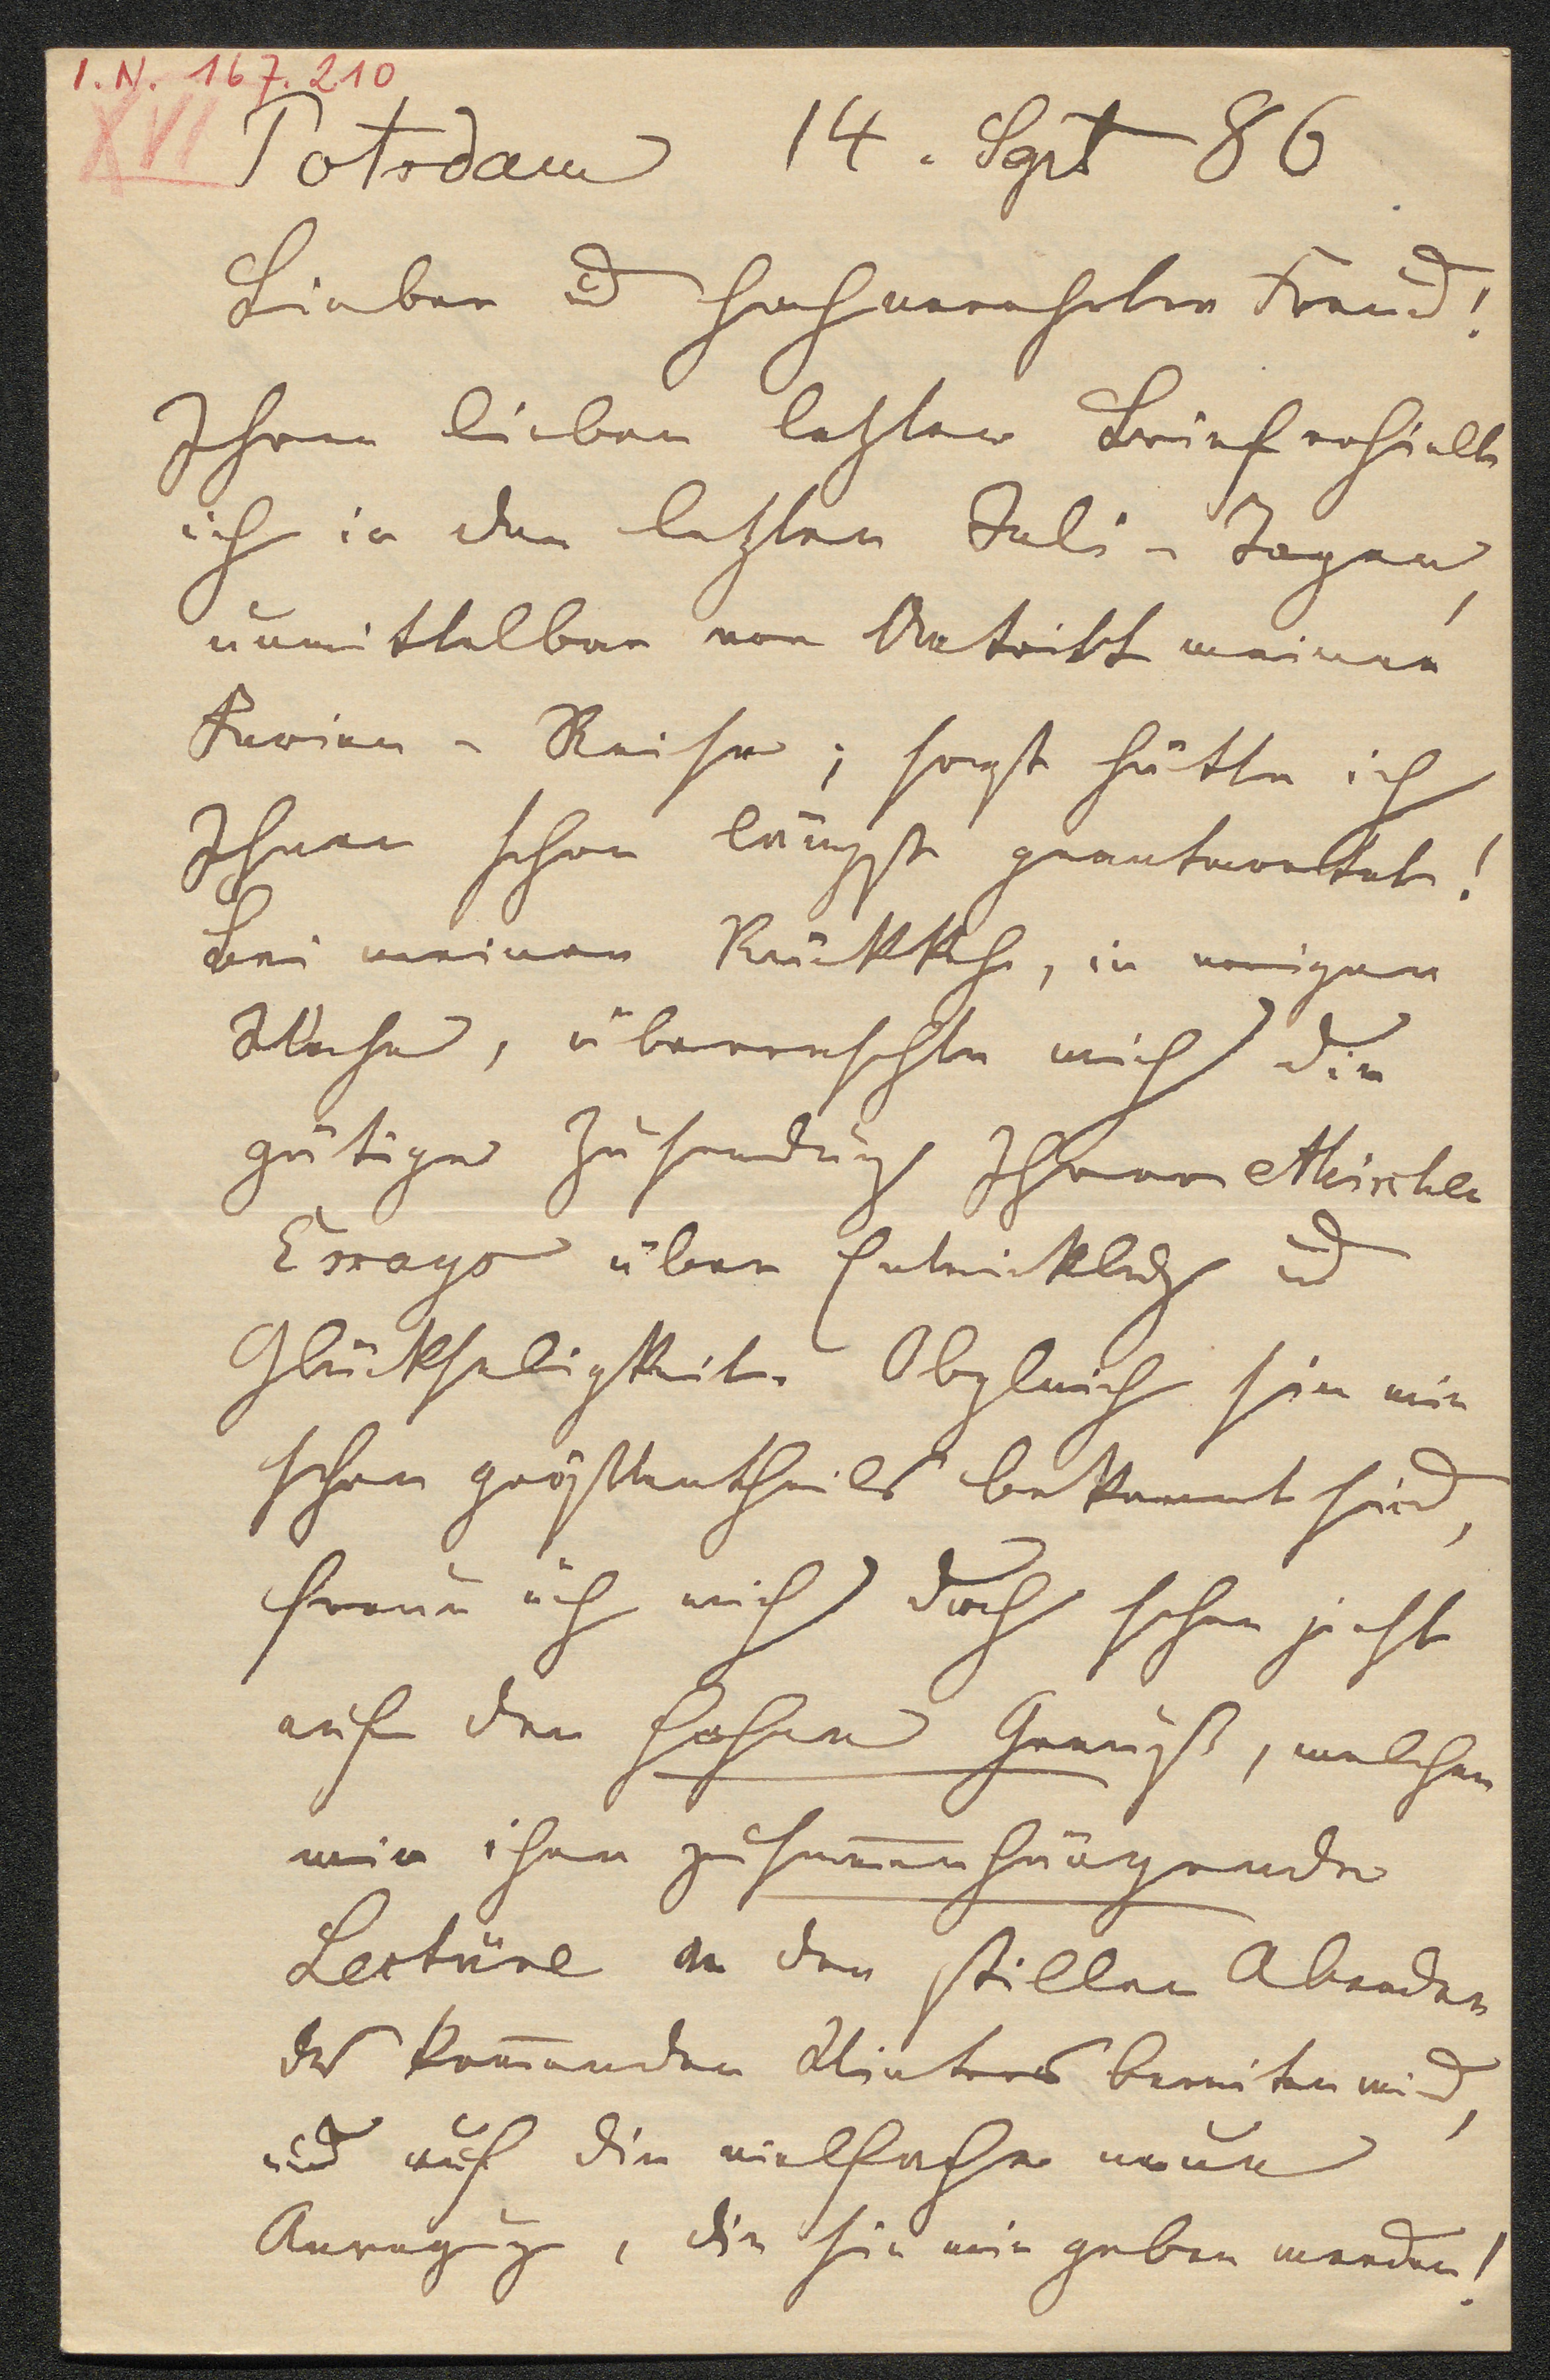 I.N. 167.210
XVI
Potsdam 14. Spt 86
Lieber ud hochverehrter Freud!
Ihren lieben letzten Brief erhielt
ich in den letzten Juli-Tagen,
unmittelbar vor Antritt meiner
Ferien-Reise; sonst hätte ich
Ihnen schon längst geantwortet!
Bei meiner Rückkehr, in voriger
Woche, überraschte mich die
gütige Zusendung Ihrer
Essays über Entwicklug ud
Glückseligkeit. Obgleich sie mir
schon größtentheils bekannt sind,
freue ich mich doch schon jetzt
auf den hohen Genuß, welchen
mir ihre zusam̅enhängende
Lectüre an den stillen Abenden
des kom̅enden Winters bereiten wird,
und auf die vielfache neue
Anregug, die sie mir geben werden!